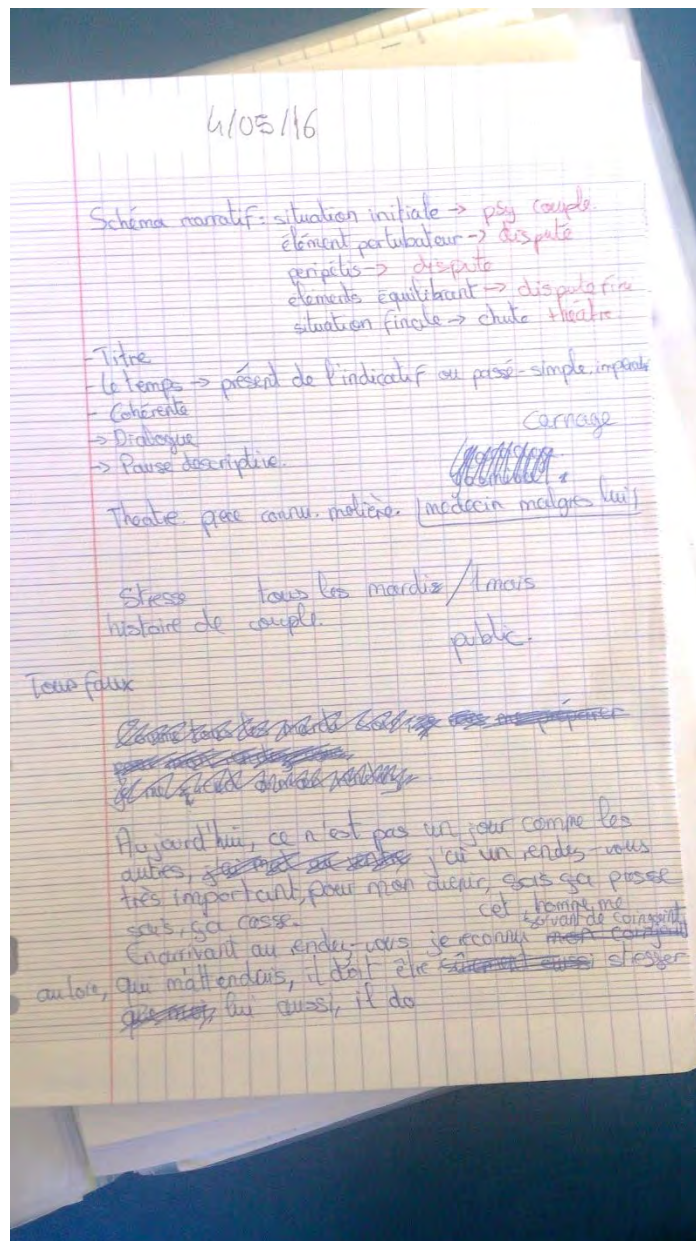 4/05/16
Schéma narratif: situation initiale → psy couple.
élément pertubateur → dispute
peripétis → dispute
éléments équilibrant → dispute fini
situation finale → chute théatre.
- Titre
- Le temps → présent de l'indicatif ou passé-simple, imparfait
- Cohérente
Carnage
→ Dialogue
→ Pause descriptive.
Theatre. piece connu. molière. medecin malgrés lui
Stresse tous les mardis / 1 mois
histoire de couple.
public.
Tous faux
Aujourd'hui, ce n'est pas un jour comme les
autres, j'ai un rendez-vous
très important, pour mon avenir, sois ça passe
sois, ça casse.
cet homme me
servant de
En arrivant au rendez-vous je reconnu
qui m'attendais, il doit être stresser
lui aussi, il do